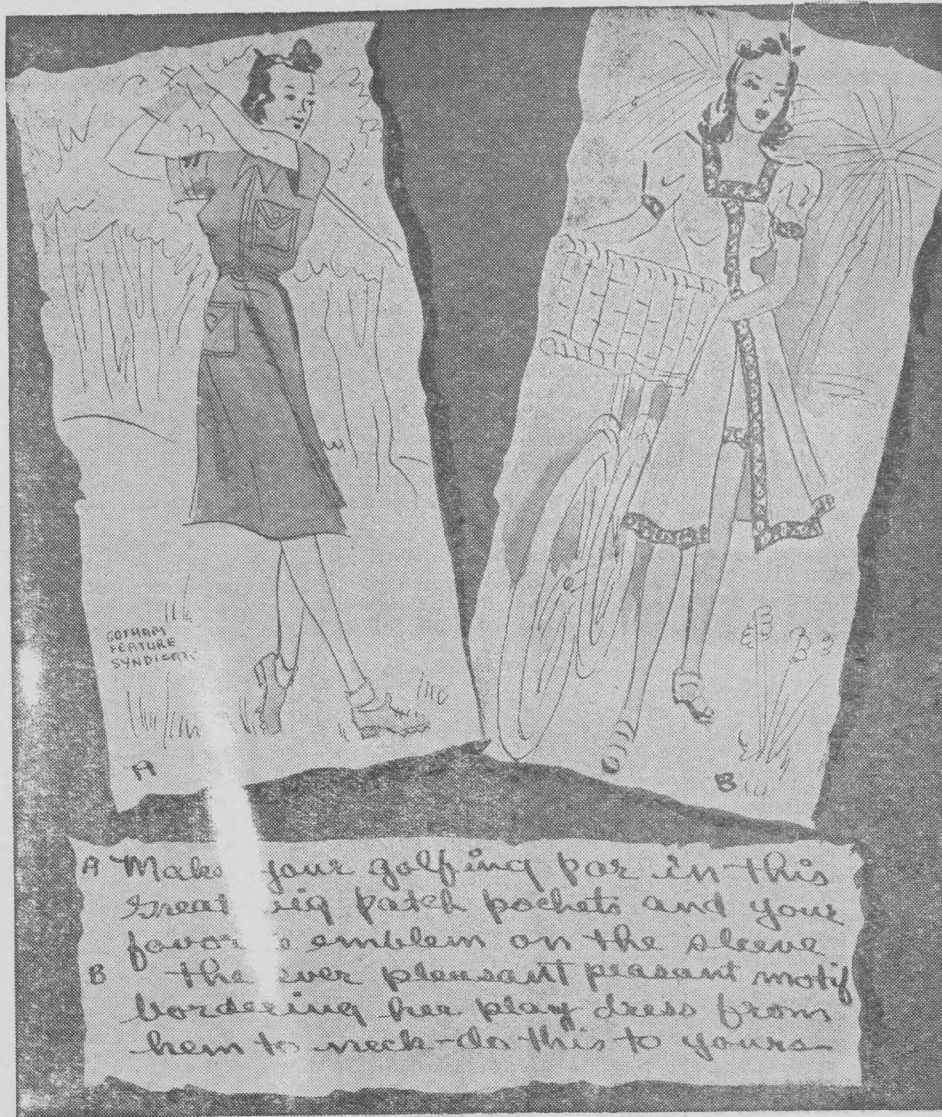 GOTHAM
FEATURE
SYNDICATE
A
B
A Make your golfing par in this
Great big patch pockets and your
favorite emblem on the sleeve
B the ever pleasant peasant motif
bordering her play dress from
hem to neck-do this to yours